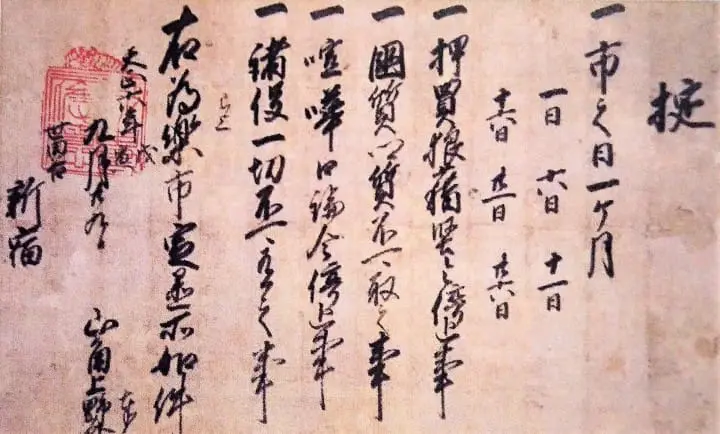 掟
一 市之日一ヶ月
一日 六日 十一日
十六日 廿一日 廿六日
一 押買狼藉堅令停止事
一 國質郷質不可取之事
一 喧嘩口論令停止事
一 諸役一切不可有之事
已上
右為楽市定置所如件
天正六年戊寅
九月廿九日
山角上野
世田谷
新宿